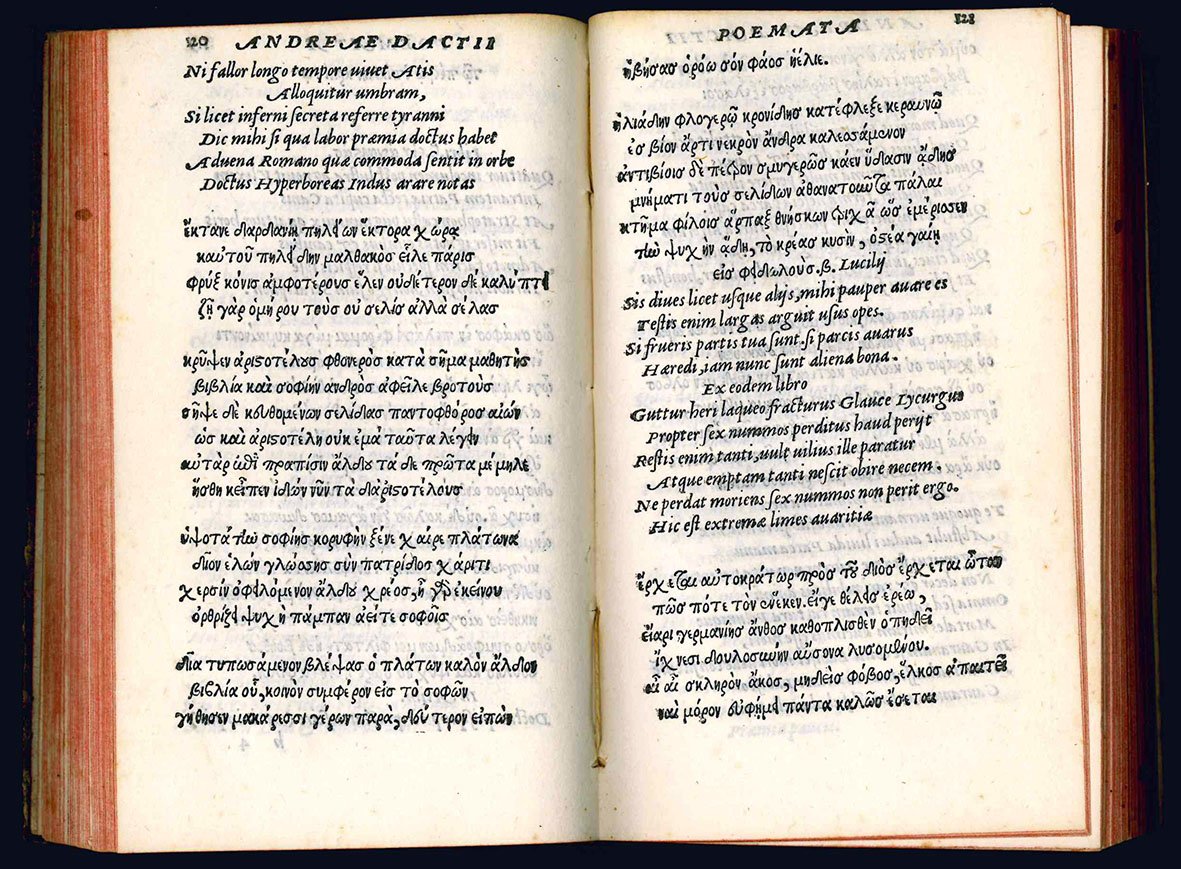 120 ANDREAE DACTII
Ni fallor longo tempore uiuet Atis
Alloquitur umbram,
Si licet inferni secreta referre tyranni
Dic mihi si qua labor præmia doctus habet
Aduena Romano quæ commoda sentit in orbe
Doctus Hyperboreas Indus arare notas
ἔκτανε δαρδανίη πηλείων ἕκτορα χώρα
καυτοῦ πηλείδην μαλθακὸς εἷλε πάρις
φρὺξ κόνις αμφοτέρους ἕλεν ουδέτερον δὲ καλύπτει
ζῇ γὰρ ὁμήρου τοὺς ου σελίς αλλὰ σέλας
κρῦψεν αριστοτέλους φθονερὸς κατὰ σῆμα μαθητὴς
βιβλία καὶ σοφίην ανδρὸς αφεῖλε βροτοὺς
σῆψε δὲ κευθομένων σελίδας παντοφθόρος αιών
ὡς καὶ αριστοτέλη ουκ εμὰ ταῦτα λέγειν
αυτὰρ πραπίσιν ἄλδου τά δε πρῶτα μέμηλε
ἥσθη κεῖπεν ιδὼν νῦν τὰ δ'αριστοτέλους
ὑψοτάτω σοφίης κορυφὴν ξένε χαῖρε πλάτωνα
δῖον ἑλὼν γλώσσης σὺν πατρίδος χάριτι
χερσὶν οφειλόμενον ἄλδου χρέος, ἢ γὰρ εκείνου
ορθρίζει ψυχὴ πάμπαν αεί τε σοφοῖς
δῖα τυπωσάμενον βλέψας ὁ πλάτων καλὸν ἄλδον
βιβλία οὗ, κοινὸν συμφέρον εις τὸ σοφῶν
γήθησεν μακάρεσσι γέρων παρὰ, δεύτερον ειπὼν
POEMATA 121
ἡβήσας ὁρόω σὸν φάος ἠέλιε.
ἡλιάδην φλογερῷ κρονίδης κατέφλεξε κεραυνῷ
ες βίον ἄρτι νεκρὸν ἄνδρα καλεσσάμενον
αντιβίοις δὲ πέτρον σμυγερῶς κάεν ὕδασιν ᾅδης
μνήματι τοὺς σελίδων αθανατοῦντα πάλαι
κτῆμα φίλοις ἅρπαξ θνήσκων ὣς εμέρισσεν
τὼ ψυχὴν ᾅδῃ, τὸ κρέας κυσὶν, οστέα γαίῃ
εις φειδωλοὺς. β. Lucilij
Sis diues licet usque alijs, mihi pauper auare es
Testis enim largas arguit usus opes.
Si frueris partis tua sunt. si parcis auarus
Hæredi, iam nunc sunt aliena bona.
Ex eodem libro
Guttur heri laqueo fracturus Glauce Lycurgus
Propter sex nummos perditus haud perijt
Restis enim tanti, uult uilius ille paratur
Atque emptam tanti nescit obire necem.
Ne perdat moriens sex nummos non perit ergo.
Hic est extremæ limes auaritiæ
ἔρχεται αυτοκράτωρ πρὸς τοῦ διὸς ἔρχεται
πῶς πότε τὸν ἕνεκεν. εἴγε θέλεις ερέω,
εἴαρι γερμανίης ἄνθος καθοπλισθὲν ὀπηδεῖ
ἴχνεσι δουλοσύνην αὔσονα λυσομένου.
αἲ αἲ σκληρὸν ἄκος, μηδεὶς φόβος, ἕλκος απαιτεῖ
ναὶ μόρον ευφήμει πάντα καλῶς ἔσεται